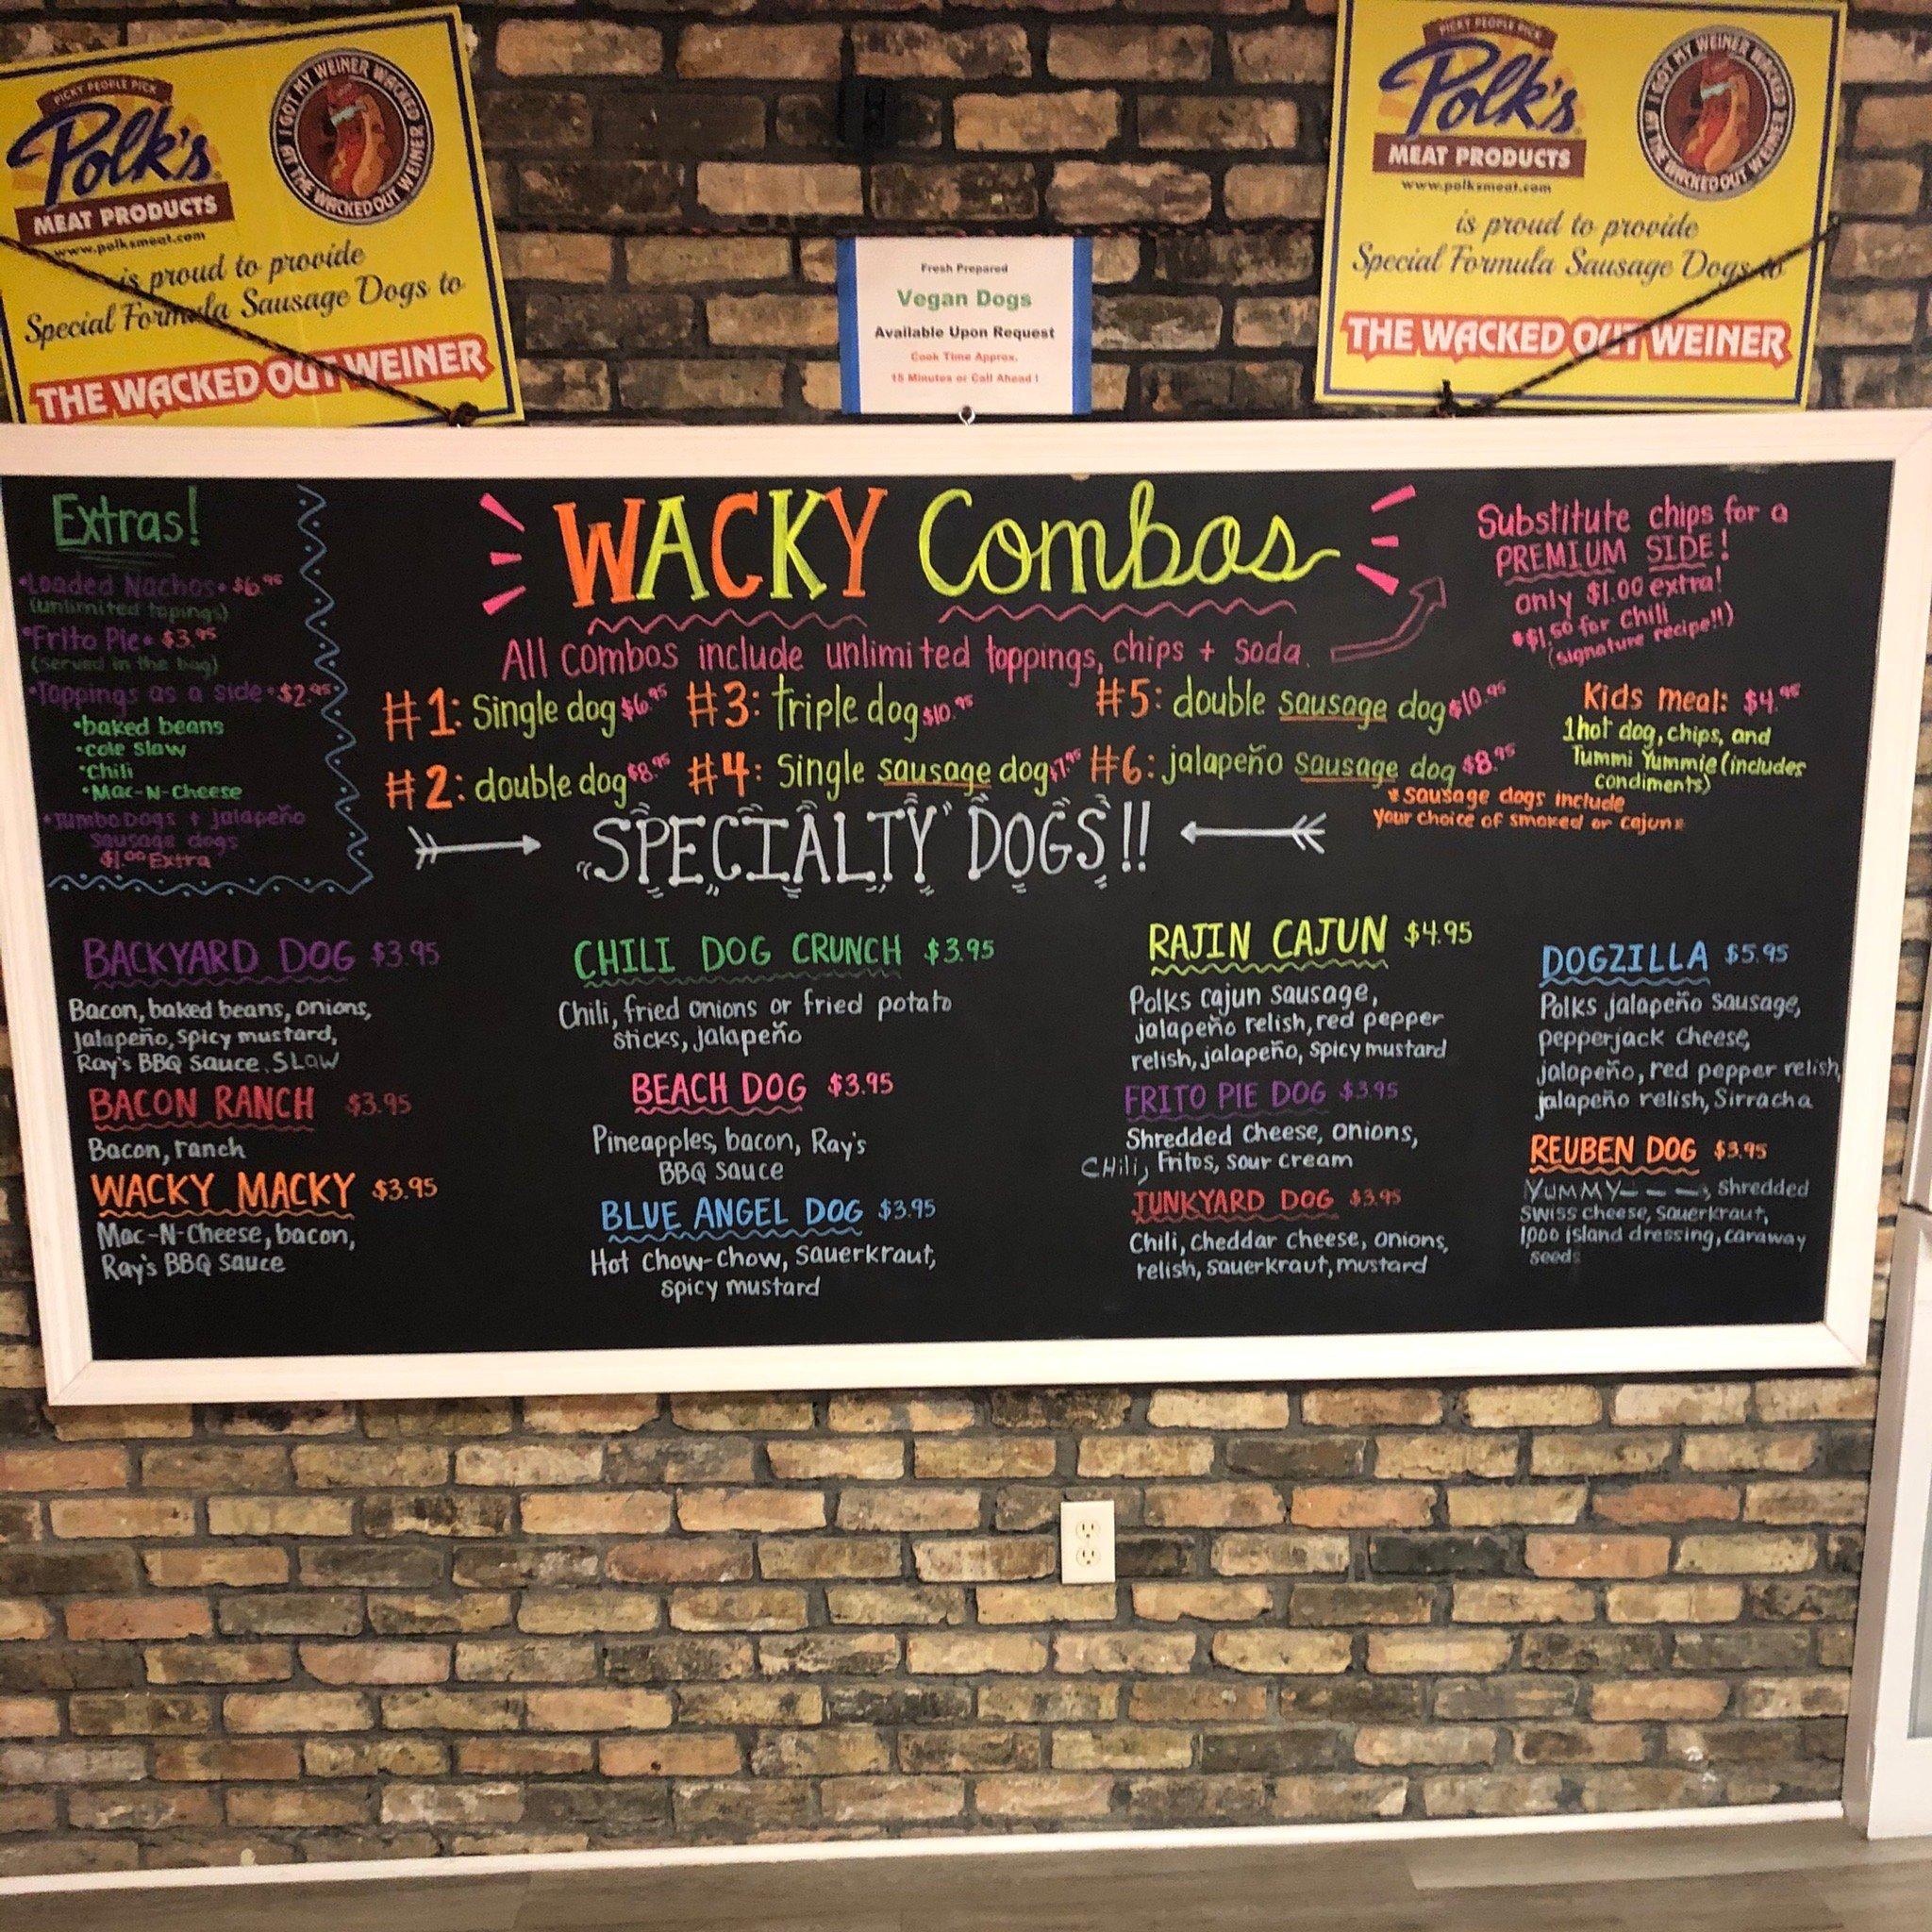 PICKY PEOPLE PICK
Polk's
MEAT PRODUCTS
www.polksmeat.com
I GOT MY WEINER WACKED
AT THE WACKEDOUT WEINER
is proud to provide
Special Formula Sausage Dogs to
THE WACKED OUT WEINER
Fresh Prepared
Vegan Dogs
Available Upon Request
Cook Time Approx.
15 Minutes or Call Ahead !
PICKY PEOPLE PICK
Polk's
MEAT PRODUCTS
www.polksmeat.com
I GOT MY WEINER WACKED
AT THE WACKEDOUT WEINER
is proud to provide
Special Formula Sausage Dogs to
THE WACKED OUT WEINER
Extras!
•Loaded Nachos• $6.95
(unlimited topings)
•Frito Pie• $3.95
(served in the bag)
•Toppings as a side•$2.95•
•baked beans
•cole slaw
•Chili
•Mac-N-Cheese
•Jumbo Dogs + jalapeño
sausage dogs
$1.00 Extra
WACKY Combos
All combos include unlimited toppings, chips + soda.
Substitute chips for a
PREMIUM SIDE!
only $1.00 extra!
*$1.50 for chili
(signature recipe!!)
#1: Single dog $6.95 #3: triple dog $10.95 #5: double sausage dog $10.95
#2: double dog $8.95 #4: Single sausage dog $7.95 #6: jalapeño sausage dog $8.95
Kids meal: $4.95
1 hot dog, chips, and
Tummi Yummie (includes
condiments)
*Sausage dogs include
your choice of smoked or cajun*
SPECIALTY DOGS!!
BACKYARD DOG $3.95
Bacon, baked beans, onions,
jalapeño, spicy mustard,
Ray's BBQ Sauce, SLAW
BACON RANCH $3.95
Bacon, ranch
WACKY MACKY $3.95
Mac-N-Cheese, bacon,
Ray's BBQ Sauce
CHILI DOG CRUNCH $3.95
Chili, fried onions or fried potato
sticks, jalapeño
BEACH DOG $3.95
Pineapples, bacon, Ray's
BBQ Sauce
BLUE ANGEL DOG $3.95
Hot Chow-chow, Sauerkraut,
spicy mustard
RAJIN CAJUN $4.95
Polks cajun sausage,
jalapeño relish, red pepper
relish, jalapeño, spicy mustard
FRITO PIE DOG $3.95
Shredded Cheese, onions,
CHili, Fritos, sour cream
JUNKYARD DOG $3.95
Chili, Cheddar cheese, onions,
relish, sauerkraut, mustard
DOGZILLA $5.95
Polks jalapeño sausage,
pepperjack cheese,
jalapeño, red pepper relish,
jalapeño relish, Sirracha
REUBEN DOG $3.95
YUMMY---, Shredded
Swiss cheese, sauerkraut,
1,000 island dressing, caraway
seeds